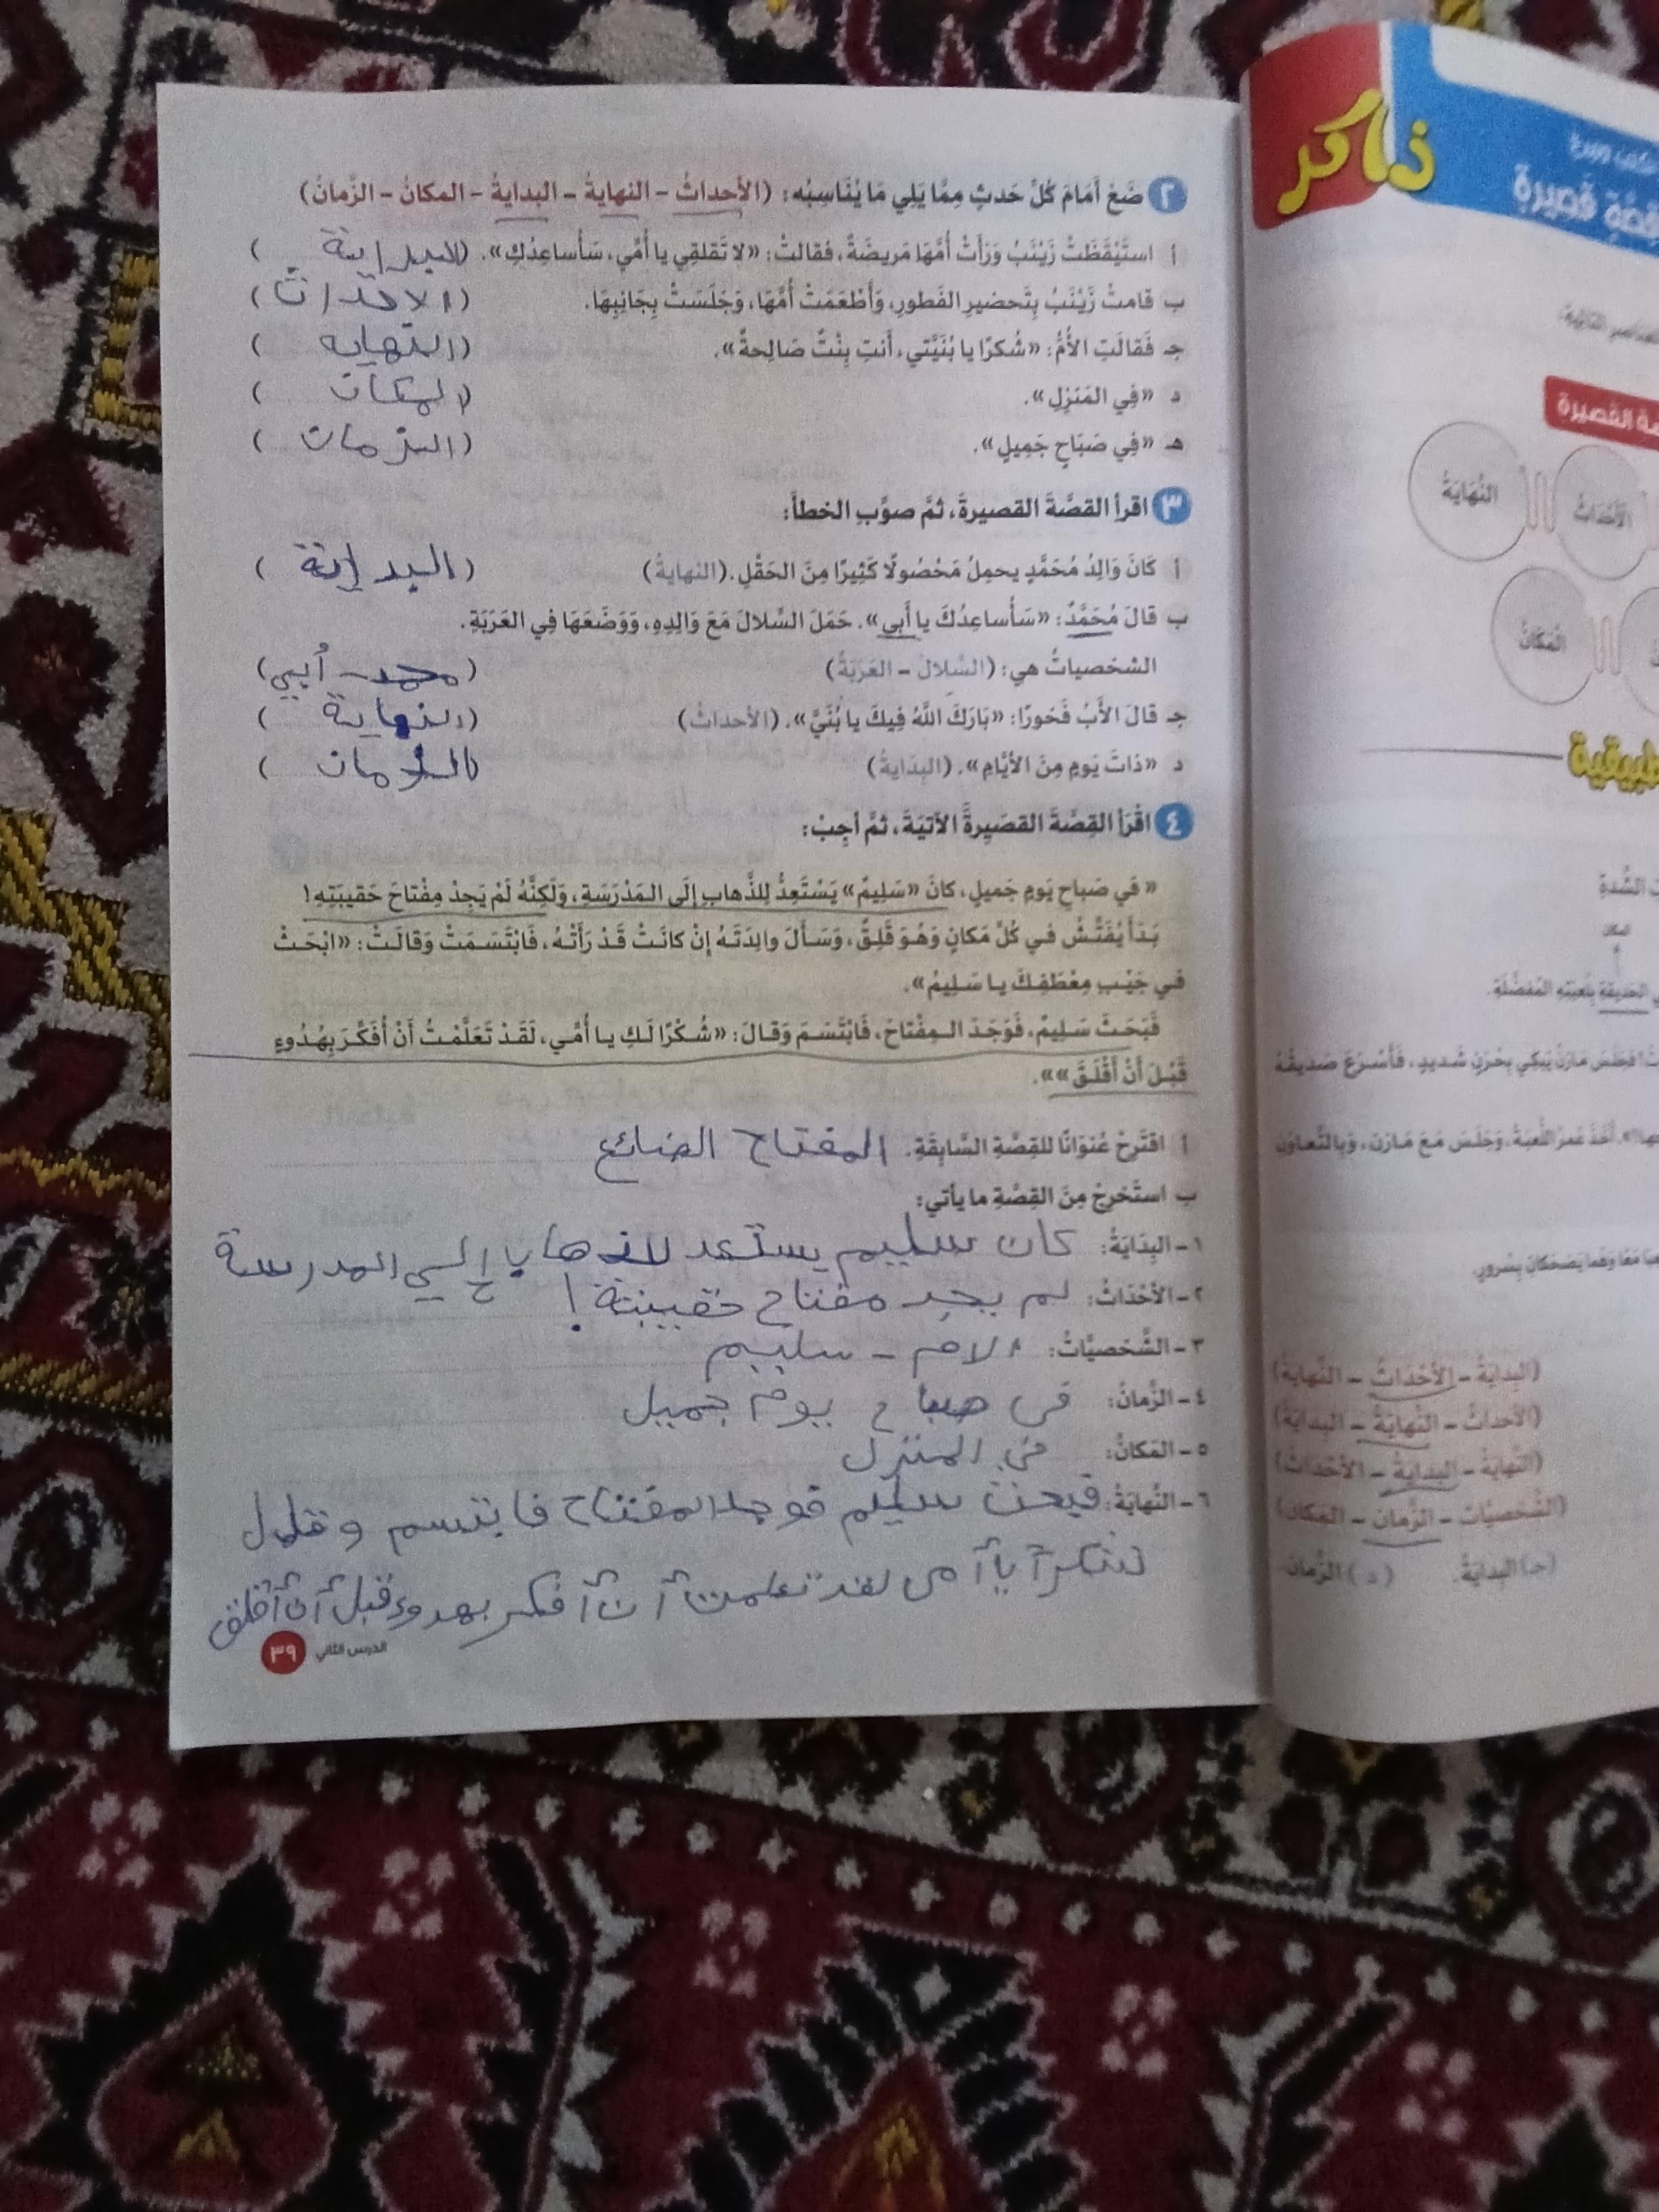 ٢ ضَعْ أَمَامَ كُلِّ حَدثٍ مِمَّا يَلِي مَا يُنَاسِبُه: (الأحداثُ – النهايةُ – البدايةُ – المكانُ – الزَّمانُ)
أ استَيْقَظَتْ زَيْنَبُ وَرَأَتْ أُمَّهَا مَريضَةً، فقالتْ: «لا تَقلقِي يا أُمِّي، سَأساعِدُكِ». (البداية)
ب قامتْ زَيْنَبُ بِتَحضيرِ الفَطورِ، وَأَطْعَمَتْ أُمَّهَا، وَجَلَسَتْ بِجَانِبِهَا. (الاحداث)
جـ فَقالَتِ الأُمُّ: «شُكرًا يا بُنَيَّتي، أَنتِ بِنْتٌ صَالِحةٌ». (النهايه)
د «فِي المَنزِلِ». (المكان)
هـ «فِي صَبَاحٍ جَمِيلٍ». (الزمان)
٣ اقرأ القصَّةَ القصيرةَ، ثمَّ صوِّبِ الخطأَ:
أ كَانَ وَالِدُ مُحَمَّدٍ يحمِلُ مَحْصُولًا كَثِيرًا مِنَ الحَقْلِ. (النهايةُ) (البداية)
ب قالَ مُحَمَّدٌ: «سَأُساعِدُكَ يا أَبِي». حَمَلَ السِّلالَ مَعَ وَالِدِهِ، وَوَضَعَهَا فِي العَرَبَةِ.
الشخصياتُ هي: (السِّلالُ – العَرَبَةُ) (محمد - أبي)
جـ قالَ الأَبُ فَخورًا: «بَارَكَ اللَّهُ فِيكَ يا بُنَيَّ». (الأحداثُ) (النهاية)
د «ذاتَ يَومٍ مِنَ الأيَّامِ». (البِدَايةُ) (الزمان)
٤ اقْرَأ القِصَّةَ القَصَيرةَ الآتيَةَ، ثمَّ أجِبْ:
« في صَباحِ يَومٍ جَميلٍ، كانَ «سَلِيمٌ» يَسْتَعِدُّ لِلذَّهابِ إِلَى المَدْرَسَةِ، وَلَكِنَّهُ لَمْ يَجِدْ مِفْتاحَ حَقيبَتِهِ!
بَدَأَ يُفَتِّشُ في كُلِّ مَكانٍ وَهُوَ قَلِقٌ، وَسَأَلَ والِدَتَهُ إنْ كانَتْ قَدْ رَأَتْهُ، فَابْتَسَمَتْ وَقالَتْ: «ابْحَثْ
في جَيْبِ مِعْطَفِكَ يا سَلِيمُ».
فَبَحَثَ سَلِيمٌ، فَوَجَدَ المِفْتاحَ، فَابْتَسَمَ وَقالَ: «شُكْرًا لَكِ يا أُمِّي، لَقَدْ تَعَلَّمْتُ أَنْ أُفَكِّرَ بِهُدُوءٍ
قَبْلَ أَنْ أَقْلَقَ»».
أ اقتَرِحْ عُنوَانًا للقِصَّةِ السَّابِقَةِ. المفتاح الضائع
ب استَخرِجْ مِنَ القِصَّةِ ما يأتي:
١- البِدَايَةُ: كان سليم يستعد للذهاب إلي المدرسة
٢- الأَحْدَاثُ: لم يجد مفتاح حقيبتة!
٣- الشَّخصيَّاتُ: الام - سليم
٤- الزَّمانُ: في صباح يوم جميل
٥- المَكانُ: في المنزل
٦- النِّهايَةُ: فبحث سليم فوجد المفتاح فابتسم وقال
شكرآ يا آمي لقد تعلمت آن آفكر بهدوء قبل آن آقلق
الدرس الثاني ٣٩
ذاكر
قِصَّةٍ قَصِيرةٍ
النِّهَايَةُ
الأَحْدَاثُ
المَكانُ
المكان
(البدايَةُ – الأَحْدَاثُ – النِّهايةُ)
(الأحداثُ – النِّهايَةُ – البدايَةُ)
(النِّهايَةُ – البدايةُ – الأحْدَاثُ)
(الشَّخصيَّات – الزَّمان – المَكان)
(جـ) البدايَةُ. (د) الزَّمان